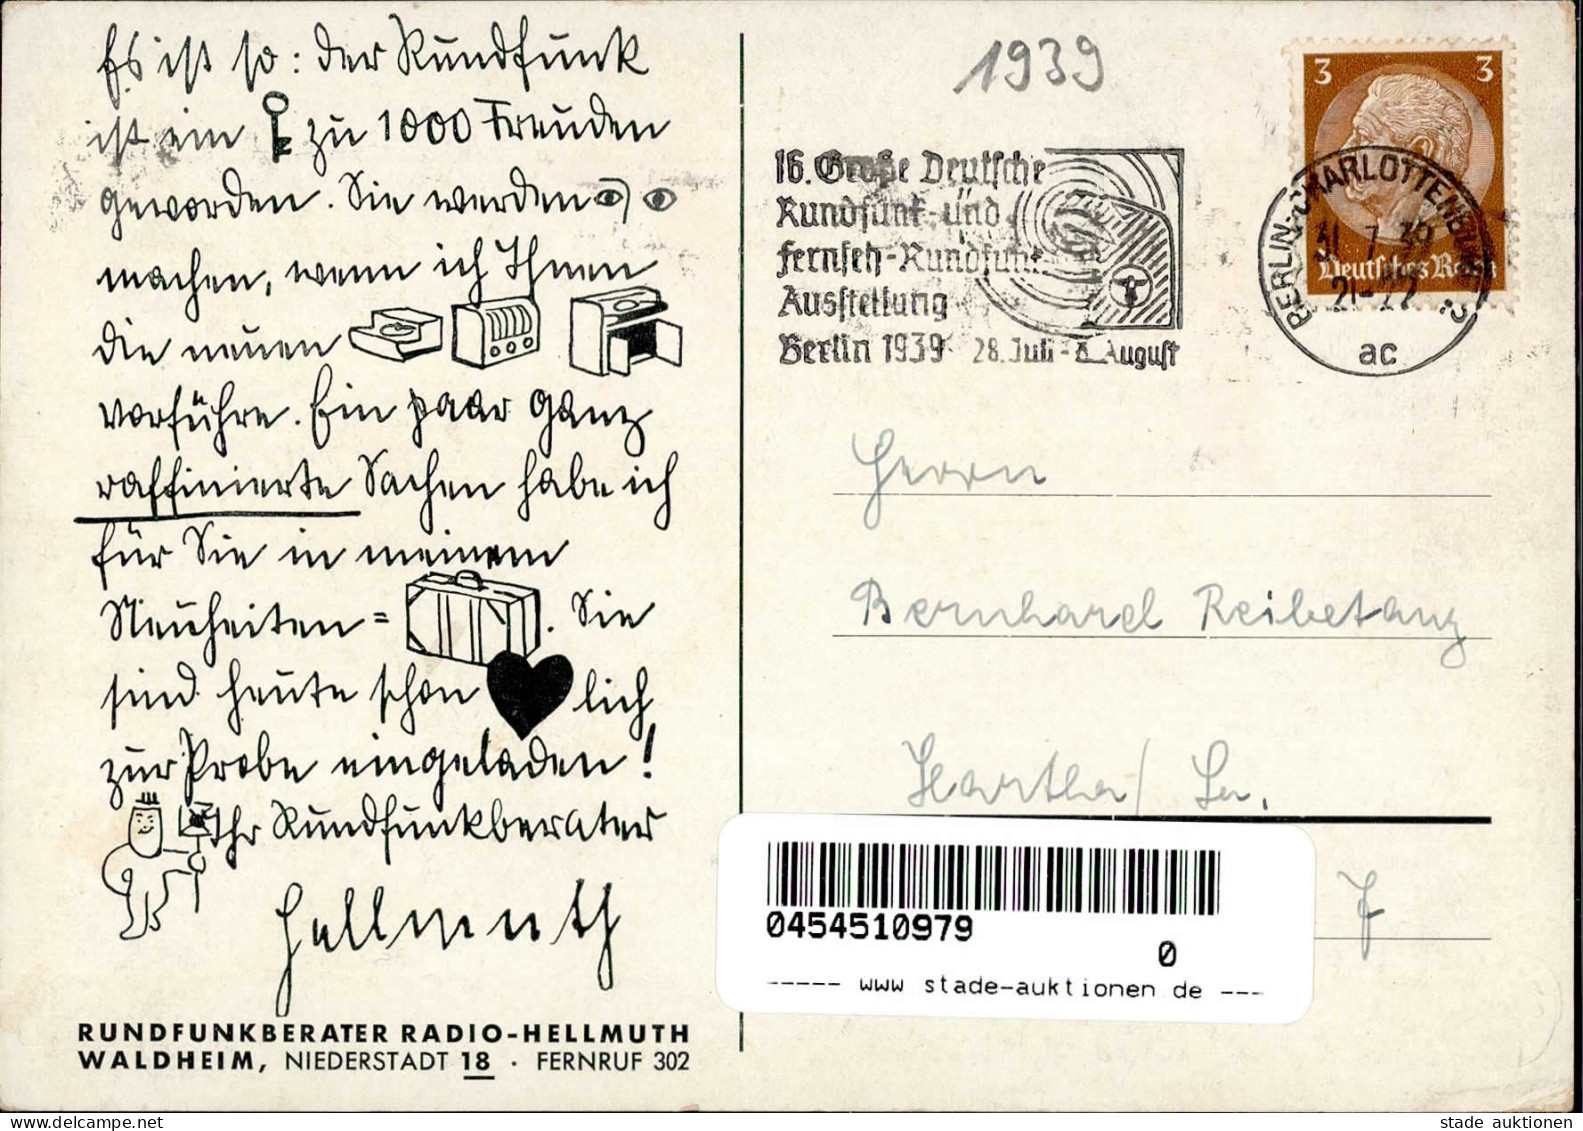 Es ist so: der Rundfunk
ist ein zu 1000 Freuden
geworden. Sie werden
machen, wenn ich Ihnen
die neuen
vorführe. Ein paar ganz
raffinierte Sachen habe ich
für Sie in meinem
Neuheiten= . Sie
sind heute schon lich
zur Probe eingeladen!
Ihr Rundfunkberater
Hellmuth
RUNDFUNKBERATER RADIO-HELLMUTH
WALDHEIM, NIEDERSTADT 18 · FERNRUF 302
1939
16. Große Deutsche
Rundfunk- und
Fernseh-Rundfunk
Ausstellung
Berlin 1939 28. Juli - August
3 3
Deutsches Reich
BERLIN-CHARLOTTENBURG
31.7.39
21-22
ac
Herrn
Bernhard Reibetanz
Hartha/ Sa.
0454510979
0
----- www stade-auktionen de ---
stade auktionen